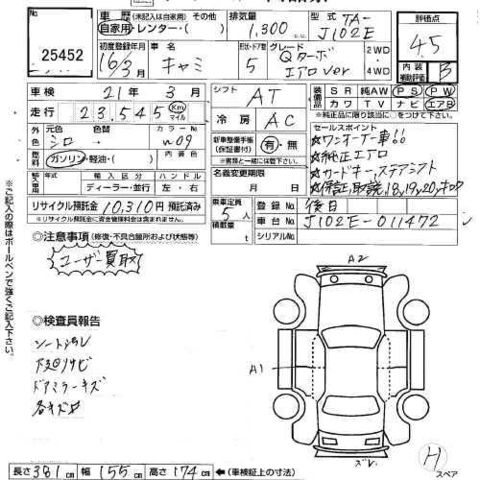 25452
車歴 (未記入は自家用) その他
自家用・レンター・( )
排気量
1,300 cc
型式
TA-
J102E
評価点
4.5
初度登録年月
16/3月
車名
キャミ
形状・ドア数
5
グレード
Qターボ
エアロver
2WD
4WD
内装
補助評価
B
車検 21年 3月
シフト AT
装備
SR 純AW PS PW
カワ TV ナビ エアB
走行 23,545 Km マイル
冷房 AC
色
元色
シロ
色替
カラーNo.
W09
新車整備手帳
(保証書付)
有・無
セールスポイント
☆ワンオーナー車!!
☆純正エアロ
☆カードキー、ステアシフト
☆保証、取説、18,19,20,キロク
燃料
ガソリン・軽油・( )
名義変更期限
月 日
輸入車
輸入区分
ディーラー・並行
ハンドル
左・右
リサイクル預託金 10,310円 預託済み
リサイクル預託金に資金管理料金は含まれますん。
乗車定員
5人
積載量
t
登録No. 後日
車台No. J102E-011472
シリアルNo.
◎注意事項 (修復・不具合箇所および状態等)
ユーザー買取
※ご記入の際はボールペンで強くご記入下さい。
◎検査員報告
下廻りサビ
ドアミラーキズ
A2
A1
H
スペア
長さ 381cm 幅 155cm 高さ 174cm ←(車検証上の寸法)